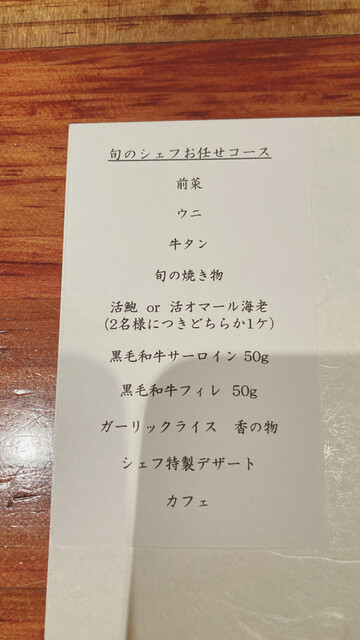 旬のシェフお任せコース
前菜
ウニ
牛タン
旬の焼き物
活鮑 or 活オマール海老
(2名様につきどちらか1ケ)
黒毛和牛サーロイン 50g
黒毛和牛フィレ 50g
ガーリックライス 香の物
シェフ特製デザート
カフェ